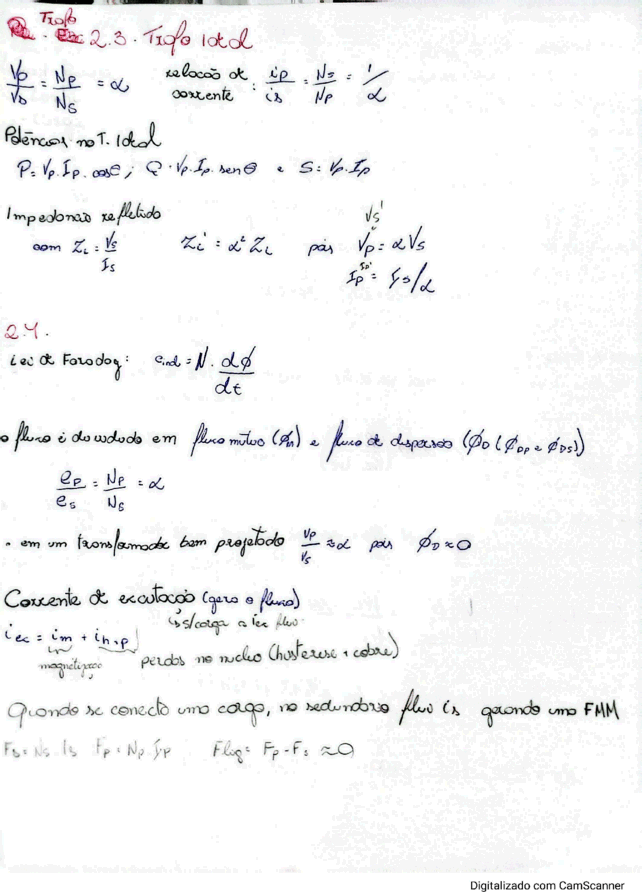 Trafo
2.3. Trafo Ideal
Vp/Vs = Np/Ns = α relação de corrente : ip/is = Ns/Np = 1/α
Potências no T. Ideal
P = Vp.Ip.cosθ ; Q = Vp.Ip.senθ e S = Vp.Ip
Impedância refletida
com ZL = Vs/Is ZL' = α² ZL pois Vs' = Vp = αVs
Ip = Is/α
2.4.
Lei de Faraday: eind = N. dϕ/dt
o fluxo é dividido em fluxo mútuo (ϕm) e fluxo de dispersão (ϕD (ϕDP e ϕDS))
eP/es = NP/NS = α
. em um transformador bem projetado VP/VS ≈ α pois ϕD ≈ 0
Corrente de excitação (gera o fluxo)
↳ s/carga a iex flui
iex = im + ih+p
magnetização perdas no nucleo (histerese + cobre)
Quando se conecta uma carga, no secundário flui is gerando uma FMM
Fs = Ns Is Fp = Np Ip Fliq = Fp - Fs ≈ 0
Digitalizado com CamScanner